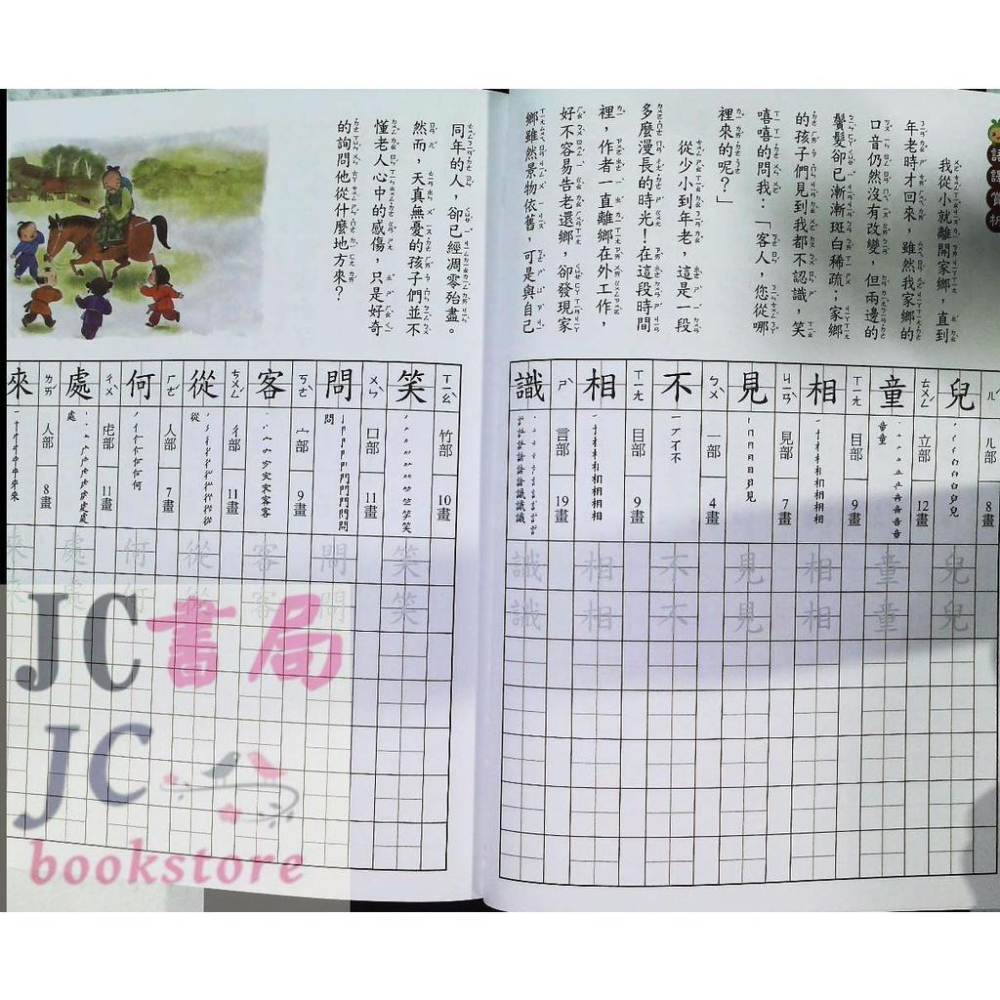 我從小就離開家鄉，直到
年老時才回來，雖然我家鄉的
口音仍然沒有改變，但兩邊的
鬢髮卻已漸漸斑白稀疏；家鄉
的孩子們見到我都不認識，笑
嘻嘻的問我：「客人，您從哪
裡來的呢？」
從少小到年老，這是一段
多麼漫長的時光！在這段時間
裡，作者一直離鄉在外工作，
好不容易告老還鄉，卻發現家
鄉雖然景物依舊，可是與自己
同年的人，卻已經凋零殆盡。
然而，天真無憂的孩子們並不
懂老人心中的感傷，只是好奇
的詢問他從什麼地方來？
兒 ㄦˊ 儿部 8畫
童 ㄊㄨㄥˊ 立部 12畫
相 ㄒㄧㄤ 目部 9畫
見 ㄐㄧㄢˋ 見部 7畫
不 ㄅㄨˋ 一部 4畫
相 ㄒㄧㄤ 目部 9畫
識 ㄕˋ 言部 19畫
笑 ㄒㄧㄠˋ 竹部 10畫
問 ㄨㄣˋ 口部 11畫
客 ㄎㄜˋ 宀部 9畫
從 ㄘㄨㄥˊ 彳部 11畫
何 ㄏㄜˊ 人部 7畫
處 ㄔㄨˋ 虍部 11畫
來 ㄌㄞˊ 人部 8畫
兒 童 相 見 不 相 識
兒 童 相 見 不 相 識
笑 問 客 從 何 處 來
笑 問 客 從 何 處 來
JC書局
JC
bookstore